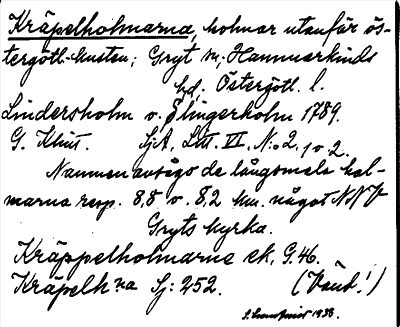 Kräpelholmarna, holmar utanför ös-
tergötl. kusten; Gryt sn, Hammarkinds
hd, Östergötl. l.
Lindersholm o. Slingerholm 1789.
G. Klint. SjA, Litt. VI, N:o 2, 1 o 2.
Namnen avsågo de långsmala hol-
marna resp. 8,8 o. 8,2 km. något NNV
Gryts kyrka.
Kräppelholmarne ek. G. 46.
Kräpelh:na Sj: 252. (Vänd!)
1933.